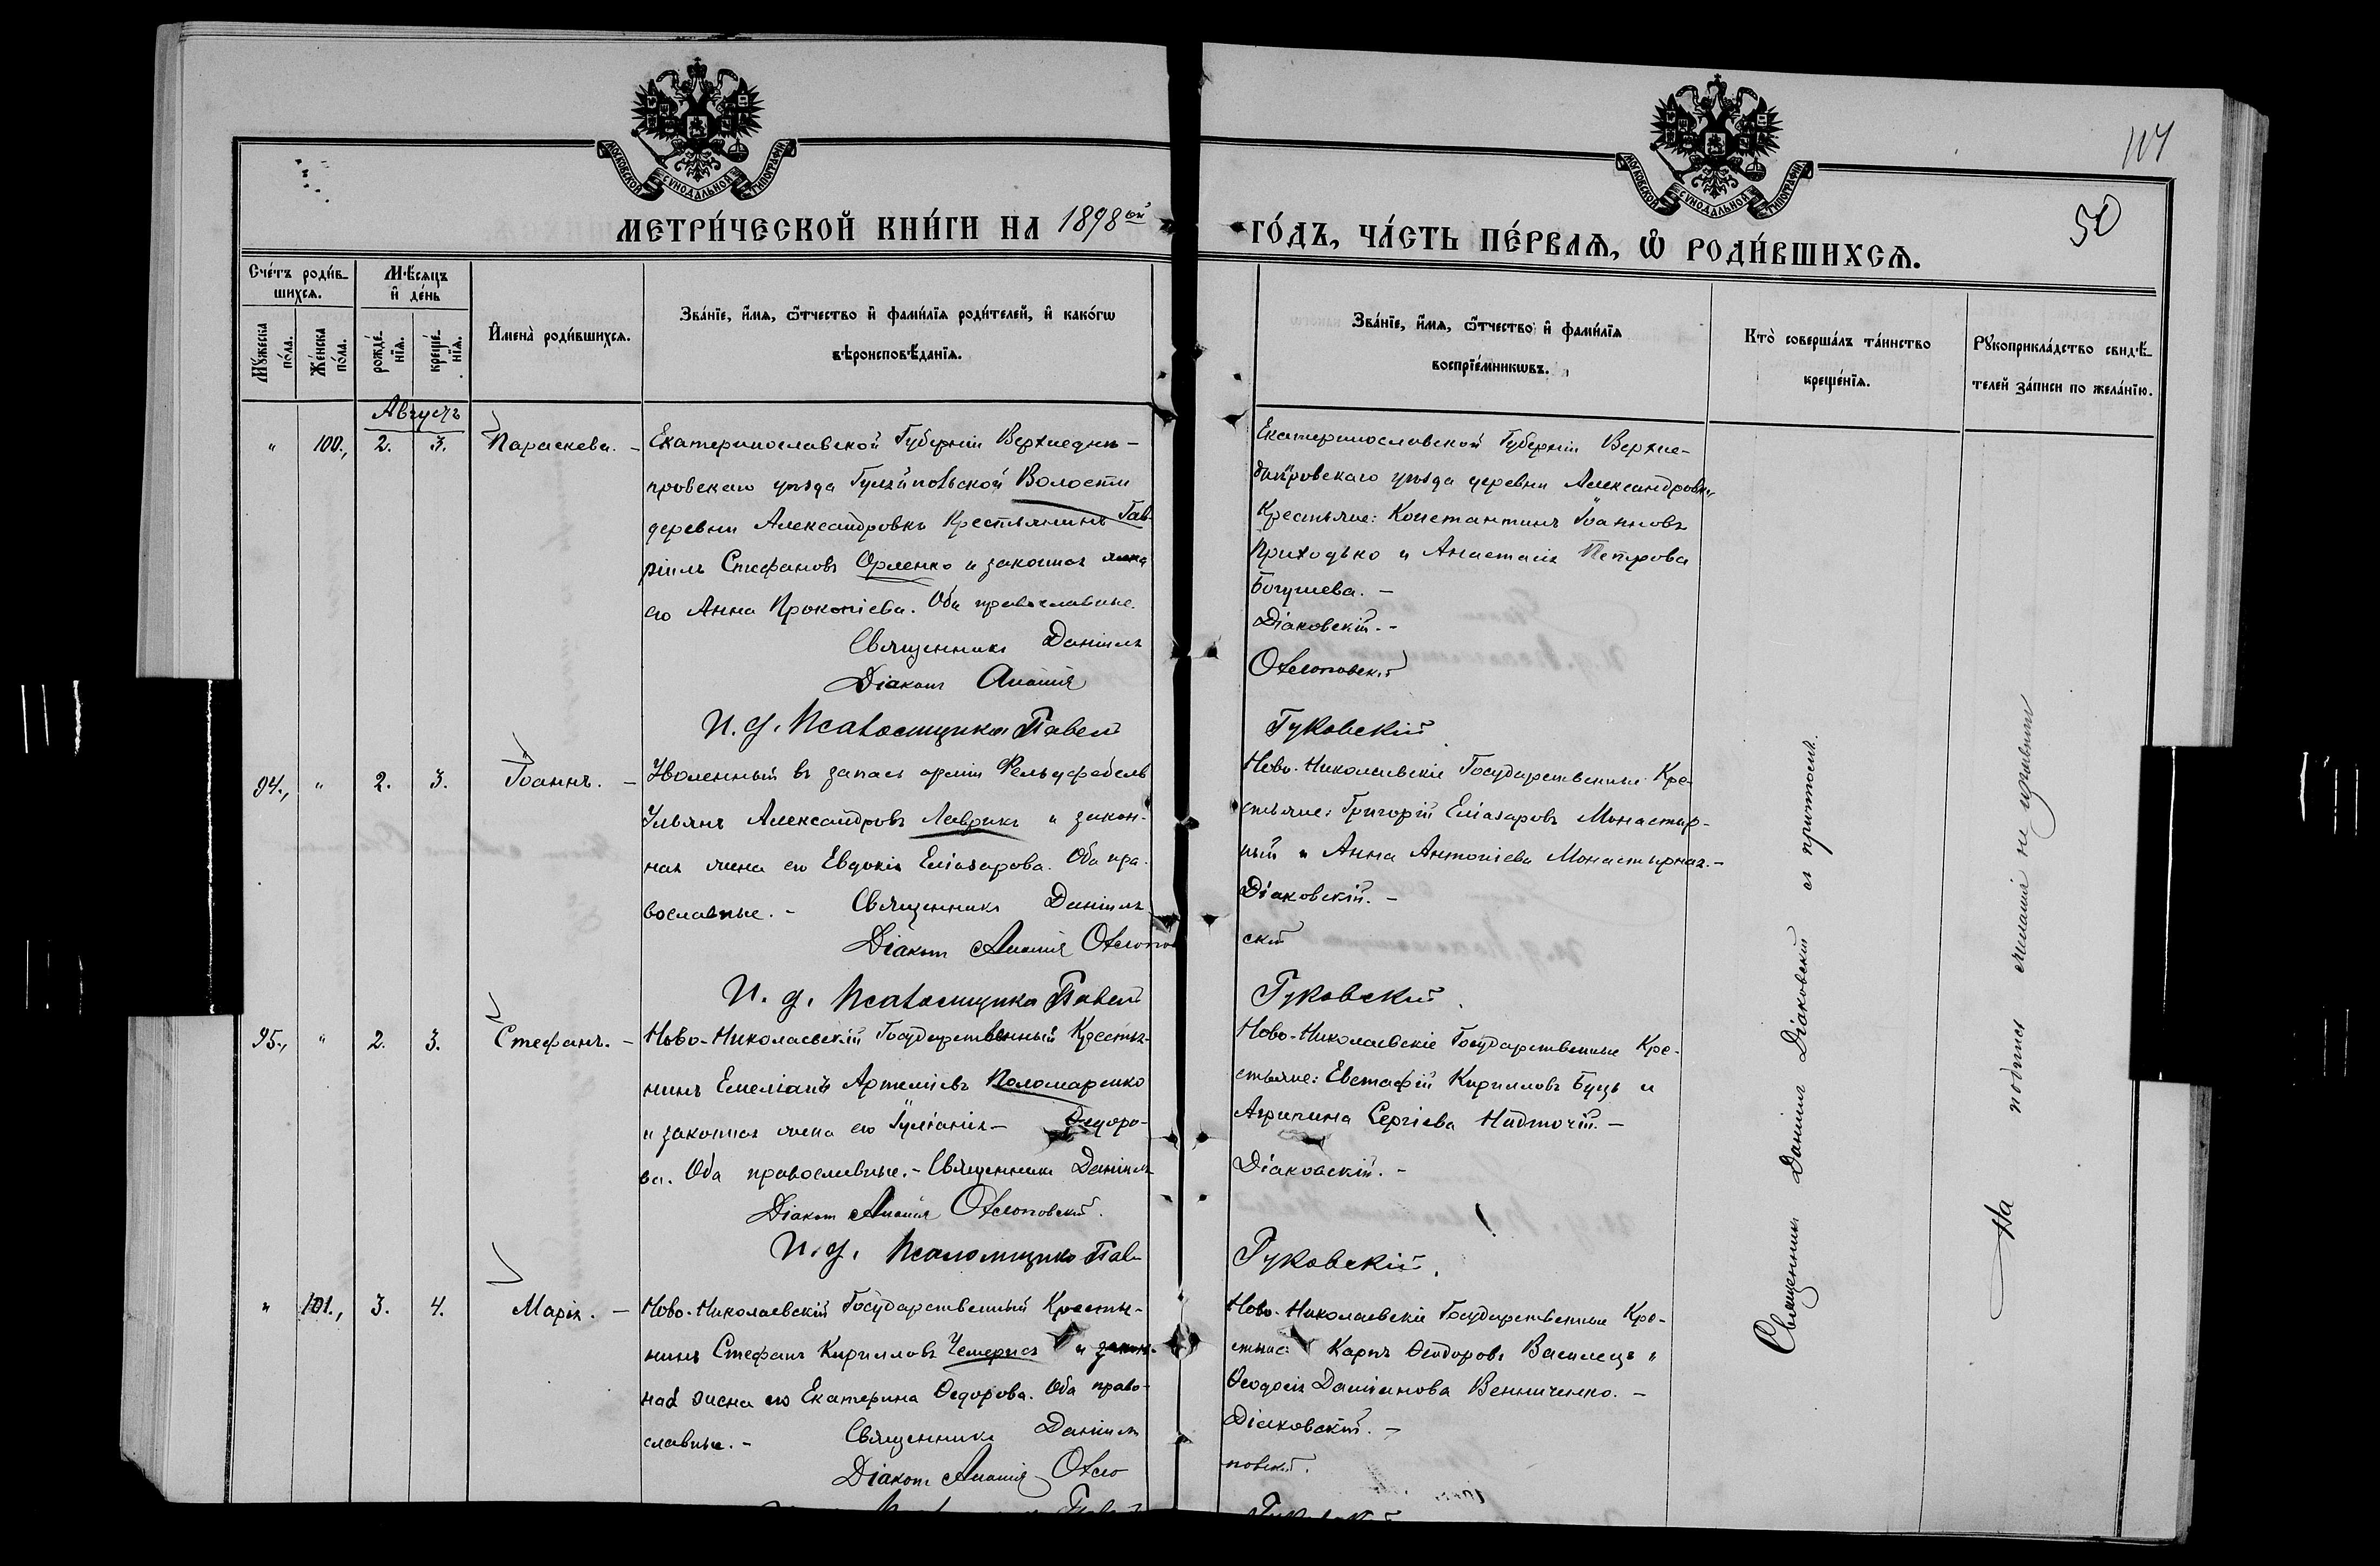 МОСКОВСКОЙ СѴНОДАЛЬНОЙ ТИПОГРАФІИ
МОСКОВСКОЙ СѴНОДАЛЬНОЙ ТИПОГРАФІИ
50
МЕТРИ́ЧЕСКОЙ КНИ́ГИ НА 1898 ой
ГО́ДЪ, ЧА́СТЬ ПЕ́РВАѦ, Ѡ҆ РОДИ́ВШИХСѦ.
Сче́тъ роди́в-
шихсѧ.
Му́жеска
по́ла.
Же́нска
по́ла.
Мѣ́сѧцъ
и҆ де́нь
рожде́-
нїѧ.
креще́-
нїѧ.
И҆мена̀ роди́вшихсѧ.
Зва́нїе, и҆́мѧ, ѻ҆́тчество и҆ фами́лїѧ роди́телей, и҆ како́гѡ
вѣроисповѣ́данїѧ.
Зва́нїе, и҆́мѧ, ѻ҆́тчество и҆ фами́лїѧ
воспрїе́мникѡвъ.
Кто̀ соверша́лъ та́инство
креще́нїѧ.
Рꙋкоприкла́дство свидѣ́-
телей за́писи по жела́нїю.
Августъ
" 100., 2. 3. Параскева. –
Екатеринославской Губерніи Верхнедни-
провскаго уѣзда Волости
деревни Александровки Крестьянинъ Гав-
ріилъ Стефановъ Орленко и законная жена
его Анна Прокопіева. Оба православные.
Священникъ Даніилъ
Діаконъ Ананія
И. д. Псаломщика Павелъ
Екатеринославской Губерніи Верхне-
днѣпровскаго уѣзда деревни Александровки
Крестьяне: Константинъ Іоанновъ
Приходько и Анастасія Петрова
Богушева. –
Діаковскій. –
Гуковскій
94., " 2. 3. Іоаннъ. –
Уволенный въ запасъ арміи Фельдфебель
Ульянъ Александровъ Лаврикъ и закон-
ная жена его Евдокія Еліазарова. Оба пра-
вославные. – Священникъ Даніилъ
Діаконъ Ананія
И. д. Псаломщика Павелъ
Ново-Николаевскіе Государственные Кре-
стьяне: Григорій Еліазаровъ Монастыр-
ный и Анна Антоніева Монастырная. –
Діаковскій. –
скій
Гуковскій.
95., " 2. 3. Стефанъ. –
Ново-Николаевскій Государственный Крестья-
нинъ Емеліанъ Артеміевъ Паламаренко
и законная жена его Іуліанія – Ѳедоро-
ва. Оба православные. – Священникъ Даніилъ
Діаконъ Ананія
И. д. Псаломщика Павелъ
Ново-Николаевскіе Государственные Кре-
стьяне: Евстафій Кирилловъ Буцъ и
Агрипина Сергіева Надточій. –
Діаковскій. –
Гуковскій.
" 101., 3. 4. Марія. –
Ново-Николаевскій Государственный Крестья-
нинъ Стефанъ Кирилловъ Чемерисъ и закон-
ная жена его Екатерина Ѳедорова. Оба право-
славные. – Священникъ Даніилъ
Діаконъ Ананія
Ново-Николаевскіе Государственные Кре-
стьяне: Карпъ Ѳеодоровъ Василецъ и
Ѳеодосія Даміанова Венниченко. –
Діаковскій. –
повскій.
Священникъ Даніилъ Діаковскій съ причтомъ.
На подпись желанія не изъявили